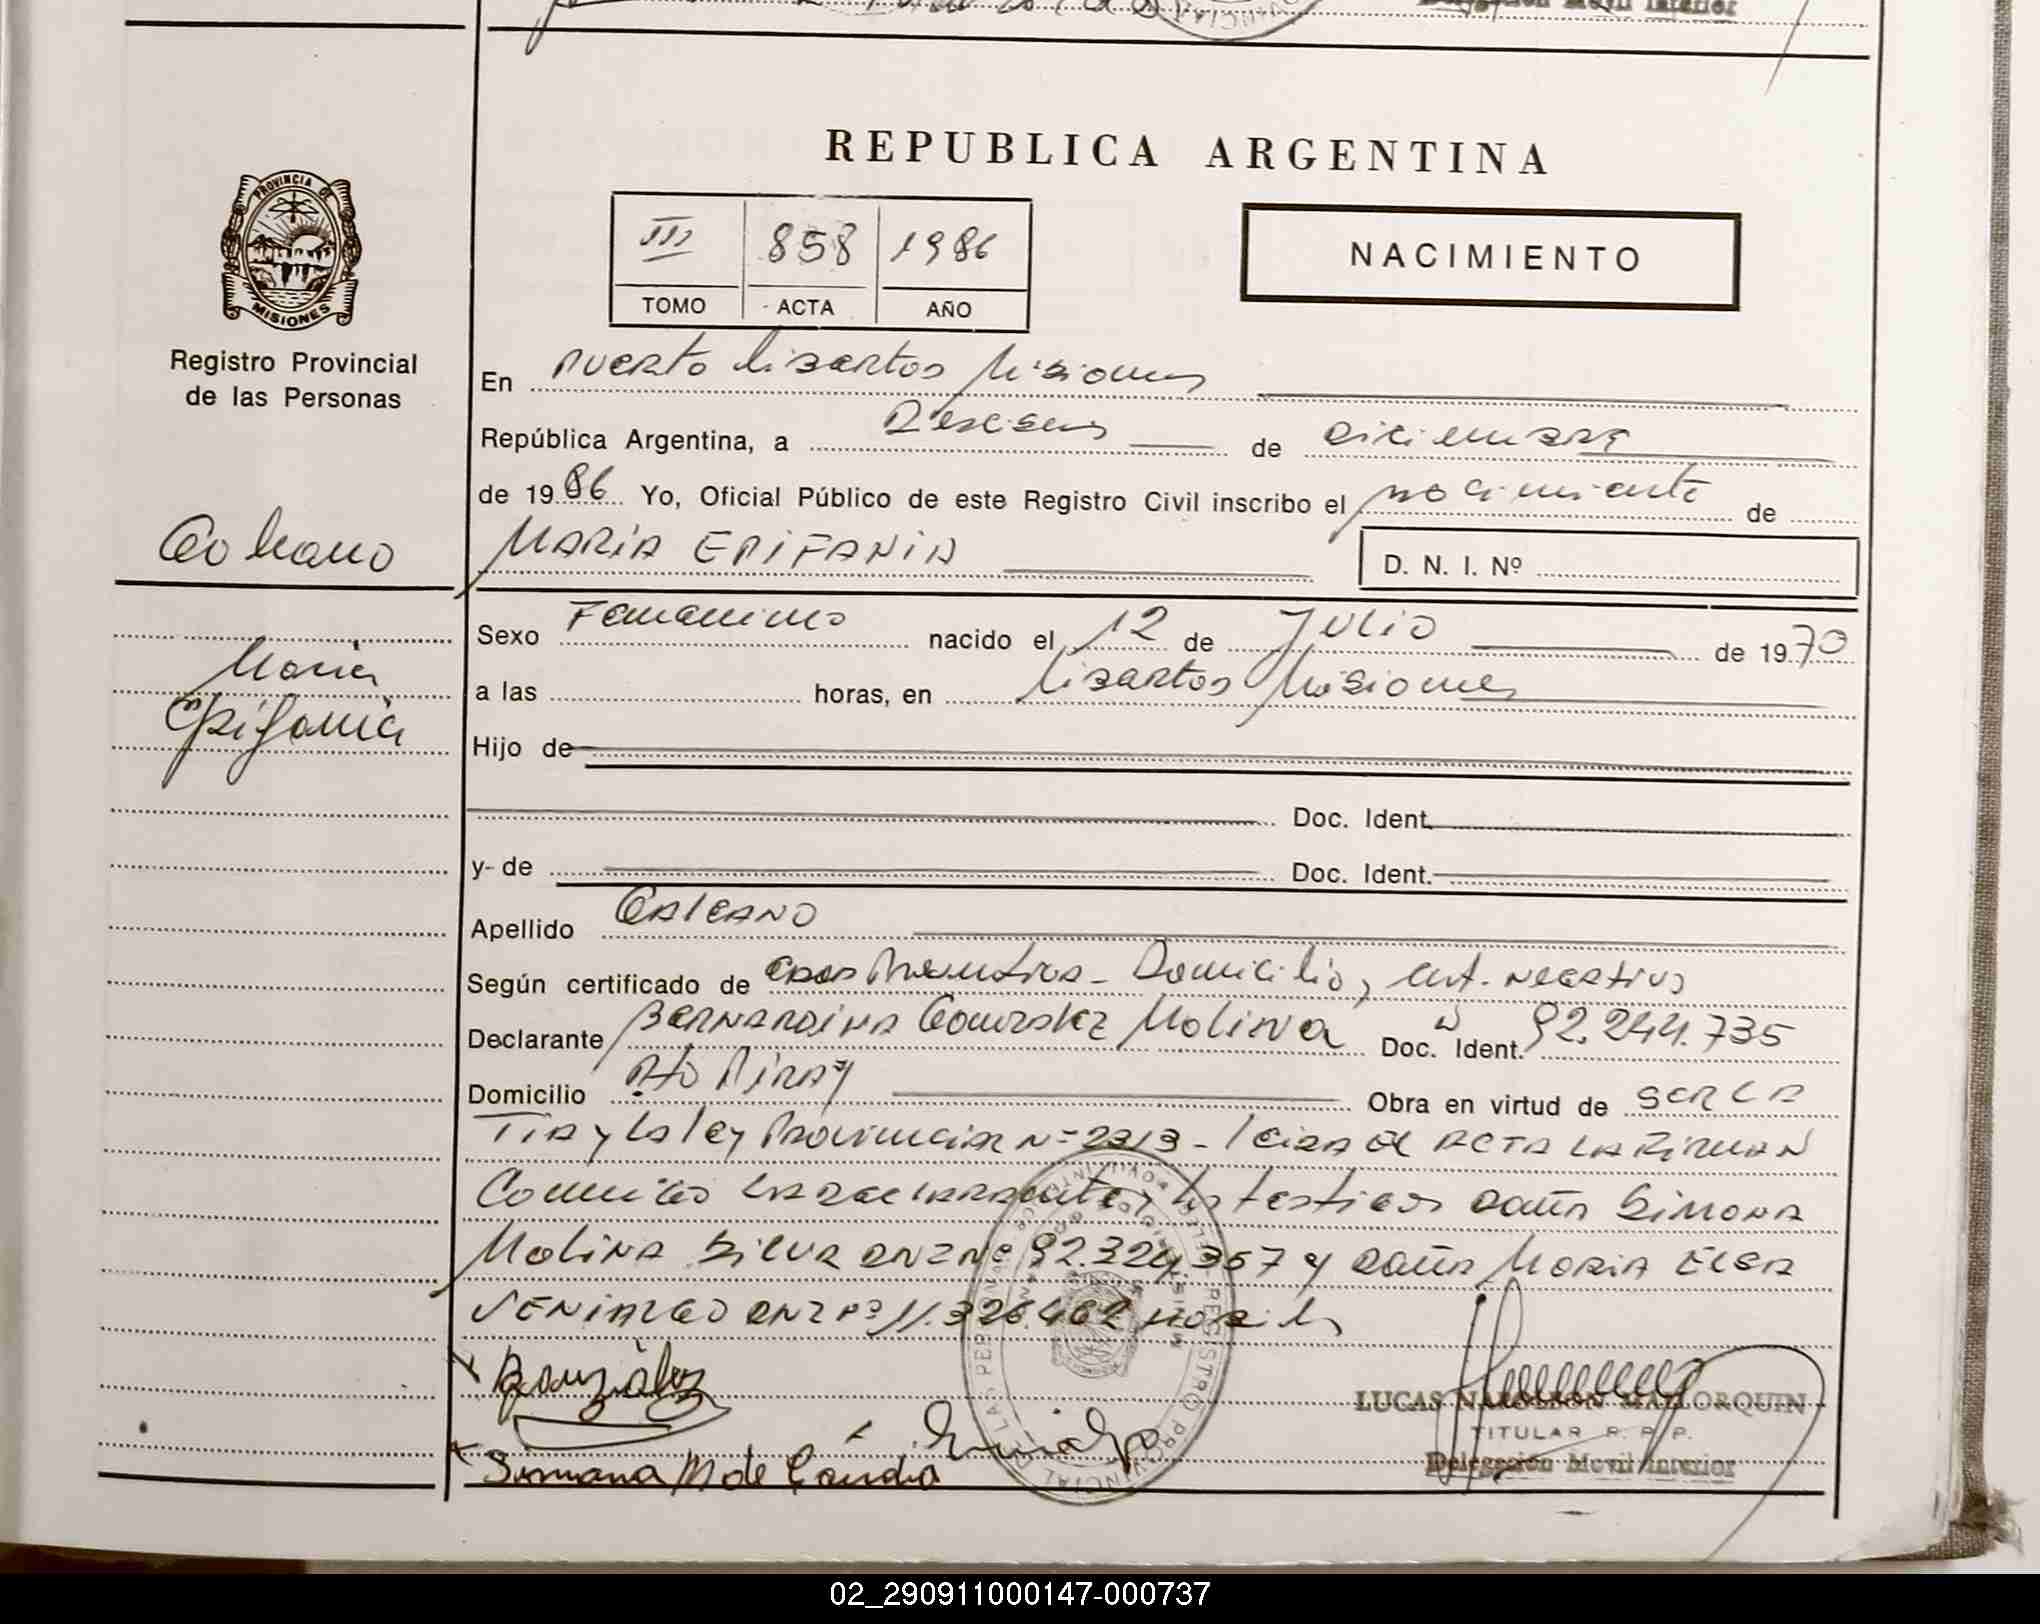 REPUBLICA ARGENTINA
PROVINCIA DE
MISIONES
Registro Provincial
de las Personas
III 858 1986
TOMO ACTA AÑO
NACIMIENTO
En Puerto Libertos Misiones
República Argentina, a Dieciseis de Diciembre
de 1986 Yo, Oficial Público de este Registro Civil inscribo el nacimiento de
MARIA EPIFANIA
D. N. I. Nº
Maria
Epifania
Sexo Femenino nacido el 12 de Julio de 1970
a las horas, en Misiones
Hijo de
Doc. Ident.
y de Doc. Ident.
Apellido GALEANO
Según certificado de Domicilio, cert. negativo
Declarante BERNARDINA Gonzalez Molina Doc. Ident. 92.244.735
Domicilio Pto Piray Obra en virtud de SER LA
TIA y la ley Provincial Nº 2313 - Leida el ACTA LA FIRMAN
Conmigo la declarante y los testigos doña Simona
Molina Silva DNI Nº 92.324.357 y doña Maria Elsa
DNI Nº 11.326.462
González
Simona M de
LUCAS NAPOLEON MALLORQUIN
TITULAR R. P. P.
Delegación Movil Interior
02_290911000147-000737